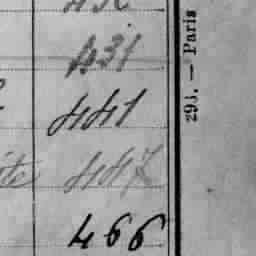 431
441
447
466
293. — Paris